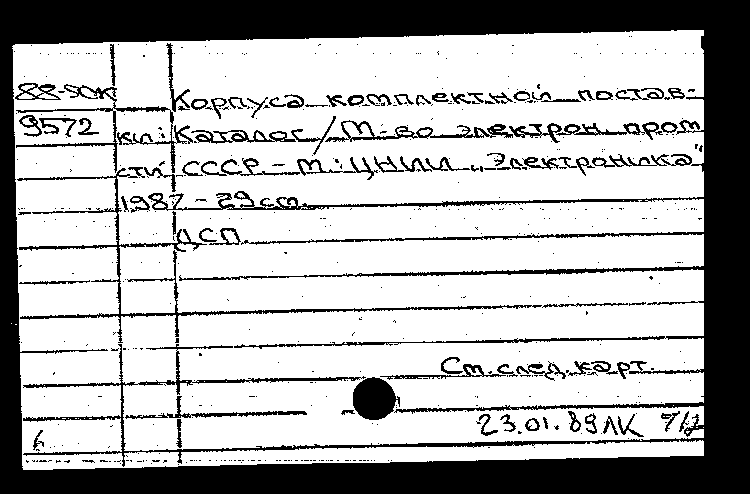 88-50К Корпуса комплектной постав-
9572 ки: Каталог / М-во электрон. пром
сти СССР.- М.: ЦНИИ „Электроника",
1987 - 29 ст.
ДСП.
См. след. карт.
23.01.89 ЛК
6